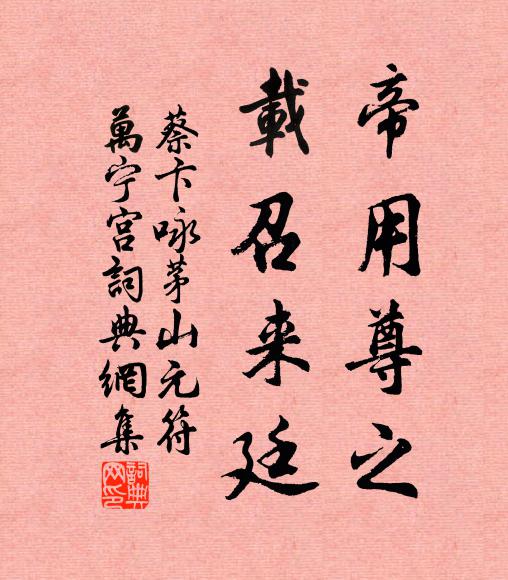 帝用尊之
載召来廷
蔡卞咏茅山元符
萬宁宫詞典網集
詞典网印